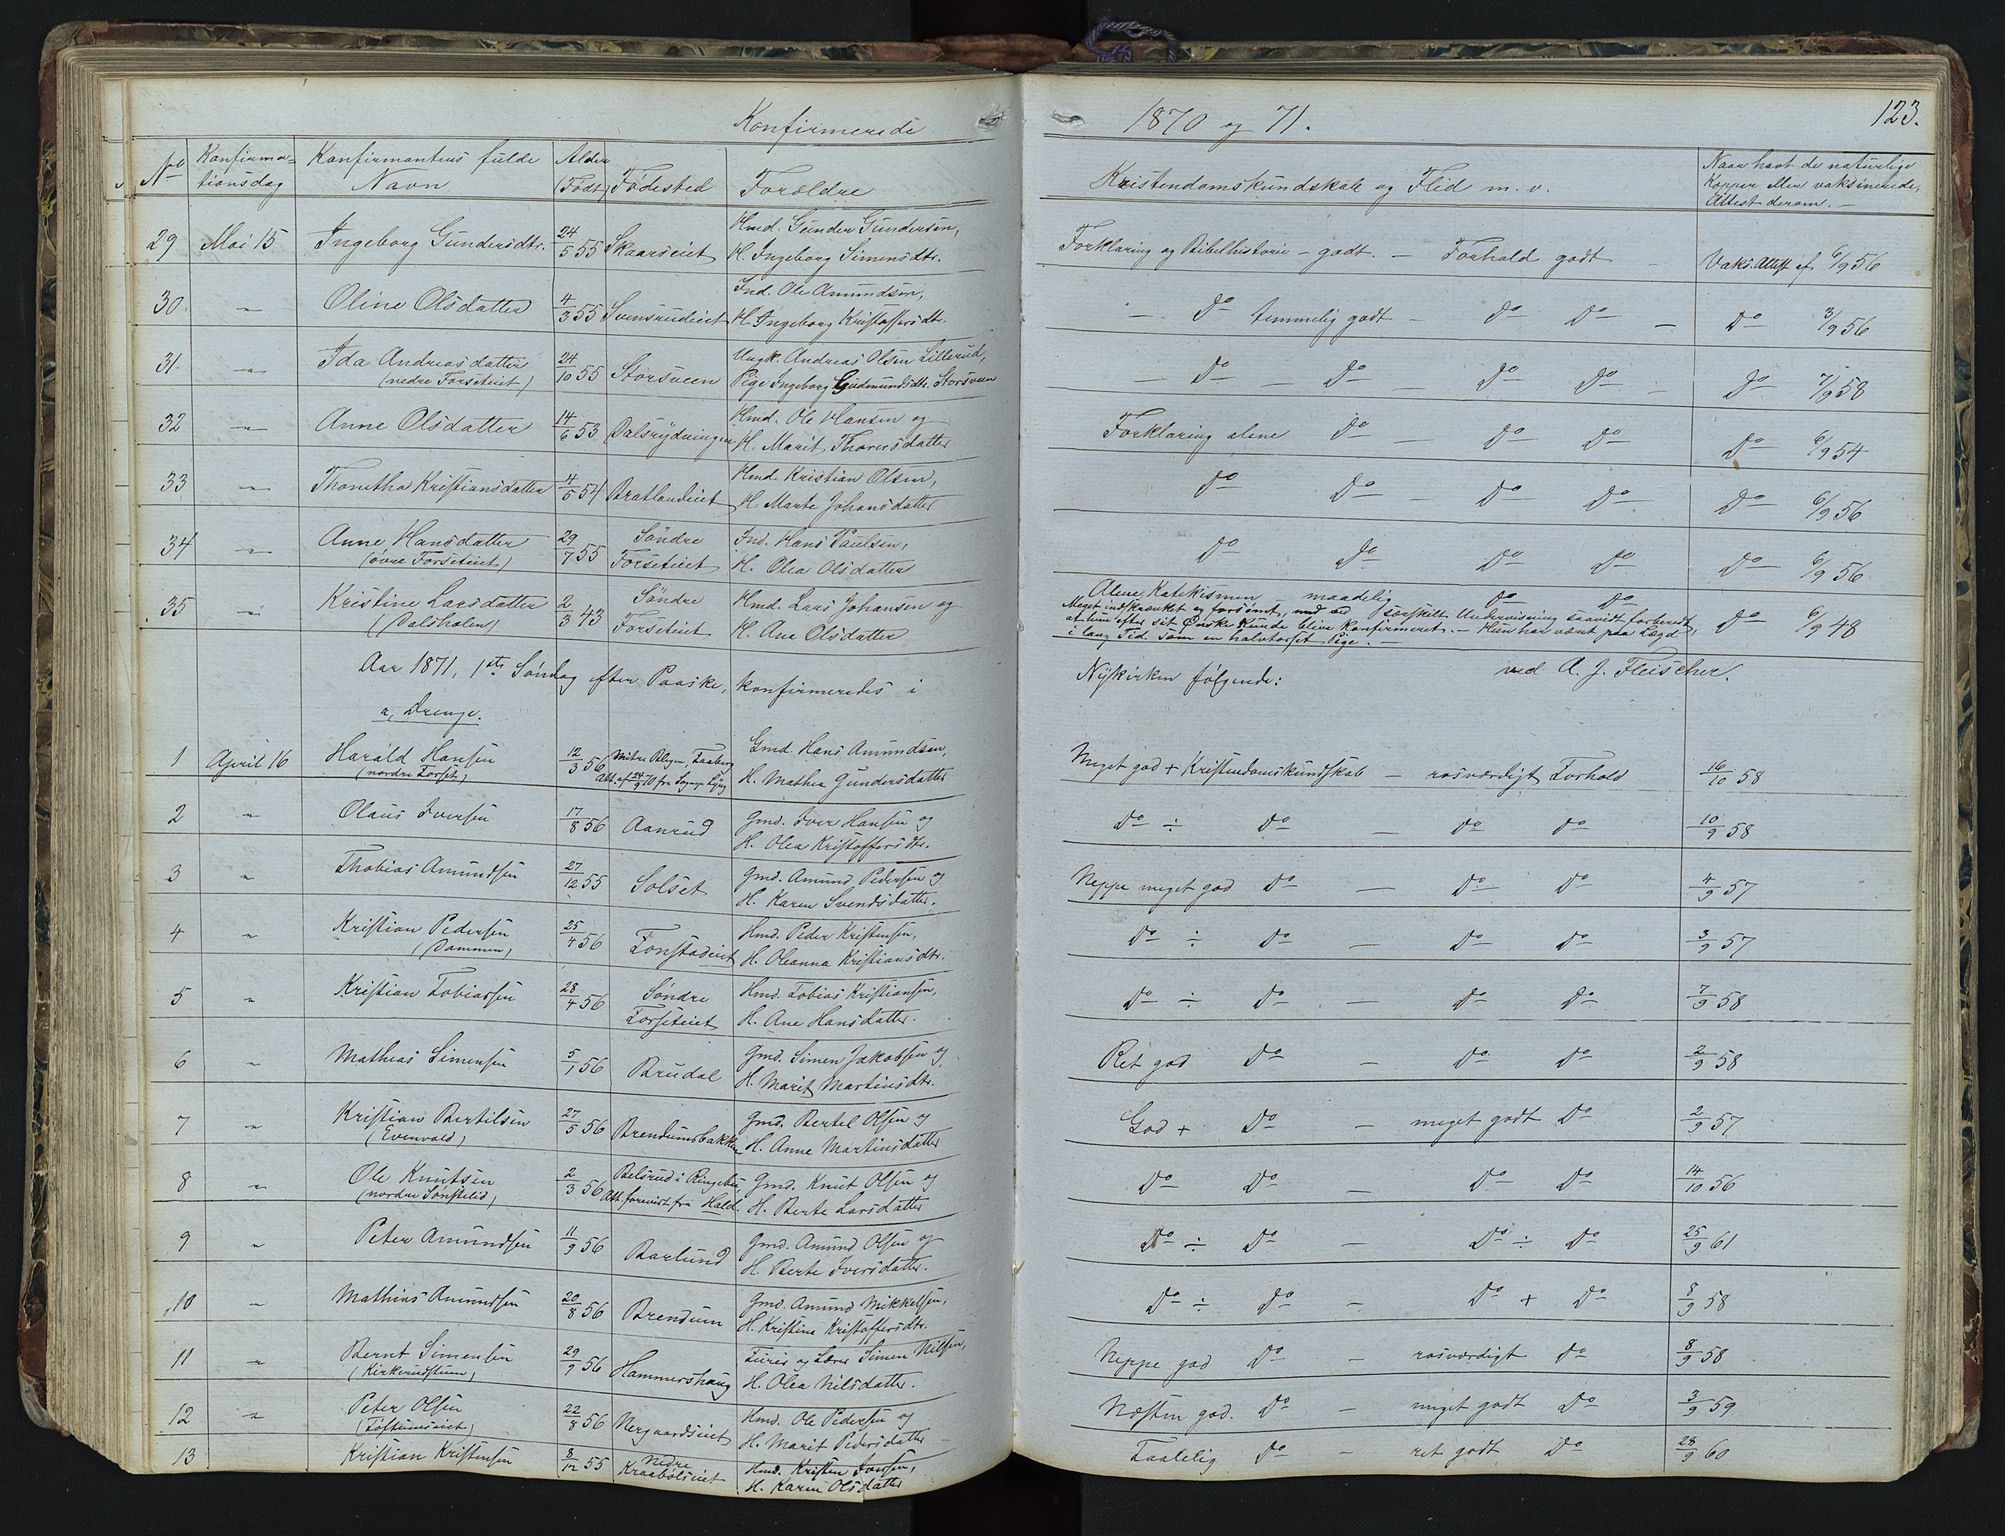 Konfirmerede 1870 og 71. 123.
No Konfirma-tionsdag Konfirmantens fulde Navn Alder (Født) Fødested Forældre Kristendomskundskab og Flid m. v. Naar havt de naturlige Kopper eller vaksinerede, Attest derom. —
29 Mai 15 Ingeborg Gundersdtr. 24/5 55 Skaarseiet Hmd. Gunder Gundersen, H. Ingeborg Simensdtr. Forklaring og Bibelhistorie – godt. – Forhold godt – Vaks. Attest af 6/9 56
30. " Oline Olsdatter 4/3 55 Svensrudeiet Ind. Ole Amundsen, H. Ingeborg Kristoffersdtr. – Do temmelig godt – Do Do – Do 3/9 56
31. " Ida Andreasdatter (nedre Forseteiet) 24/10 55 Storsveen Ungk. Andreas Olsen Lillerud, Pige Ingeborg Gudmundsdtr. Storsveen – Do – Do – Do Do – Do 7/9 58
32 " Anne Olsdatter 14/6 53 Dalsrydningen Hmd. Ole Hansen og H. Marit Thoresdatter Forklaring alene Do – Do Do Do 6/9 54
33 " Thonetha Kristiansdatter 4/5 54 Bratlandeiet Hmd. Kristian Olsen, H. Marte Johansdatter Do Do – Do Do – Do 6/9 56
34 " Anne Hansdatter (øvre Forseteiet) 29/7 55 Søndre Forseteiet Ind. Hans Paulsen, H. Olea Olsdatter Do Do Do Do Do – 6/9 56
35 " Kristine Larsdatter (Dalsholen) 2/3 43 Søndre Forseteiet Hmd. Lars Johansen og H. Ane Olsdatter Alene Katekismen – maadelig Do Do Do 6/9 48
Meget indskrænket og forsømt, med særskilt Undervisning saavidt forberedt,
at hun efter sit Ønske kunde blive konfirmeret. – Hun har været paa Lægd
i lang Tid som en halvtosset Pige. –
Aar 1871, 1ste Søndag efter Paaske, konfirmeredes i Nykirken følgende: ved A. J. Fleischer.
a, Drenge.
1 April 16 Harald Hansen (nordre Forset) 12/3 56 Faaberg Att. af 24/9 70 fra Gmd. Hans Amundsen, H. Mathea Gundersdatter Meget god + Kristendomskundskab – rosværdigt Forhold 16/10 58
2 " Olaus Iversen 17/8 56 Aanrud Gmd. Iver Hansen og H. Olea Kristoffersdtr. Do ÷ Do – Do Do 10/9 58
3 " Thobias Amundsen 27/12 55 Solset Gmd. Amund Pedersen og H. Karen Svendsdatter. Neppe meget god Do – Do Do 4/9 57
4 " Kristian Pedersen (Dammen) 25/4 56 Fonstadeiet Hmd. Peder Kristensen, H. Oleanna Kristiansdtr. Do ÷ Do – Do Do 3/9 57
5 " Kristian Tobiassen 28/4 56 Søndre Forseteiet Hmd. Tobias Kristiansen, H. Ane Hansdatter. Do ÷ Do – Do Do 7/9 58
6 " Mathias Simensen 5/1 56 Brudal Gmd. Simen Jakobsen og H. Marit Martinsdtr. Ret god Do – Do Do 2/9 58
7 " Kristian Bertilsen (Evenvold) 27/5 56 Brendumsbakken Gmd. Bertel Olsen og H. Anne Martinsdatter God + Do – meget godt Do 2/9 57
8 " Ole Knutsen 2/3 56 i Ringebu Att. forevist fra Gmd. Knut Olsen og H. Berte Larsdatter Do Do – Do Do 14/10 56
9 " Peter Amundsen 11/9 56 Barlund Gmd. Amund Olsen og H. Berte Iversdatter. Do ÷ Do Do ÷ Do 25/9 61
10 " Mathias Amundsen 20/8 56 Brendum Gmd. Amund Mikkelsen, H. Kristine Kristoffersdtr. Do ÷ Do – Do + Do 8/9 58
11 " Bernt Simensen 29/9 56 Hammershaug og Lærer Simen Nilsen, H. Olea Nilsdatter. Neppe god Do – rosværdigt Do 8/9 58
12 " Peter Olsen 22/8 56 Nergaardseiet Hmd. Ole Pedersen og H. Marit Pedersdatter – Næsten god. Do – meget godt Do 3/9 59
13 Kristian Kristensen 8/12 55 Nedre Kraabølseiet Hmd. Kristen H. Karen Olsdatter Taalelig Do – ret godt Do 28/9 60